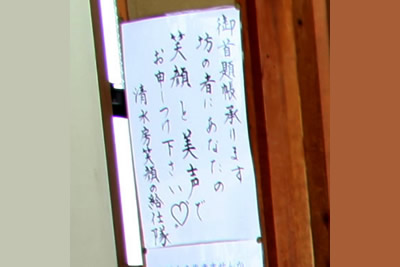 御首題帳承ります
坊の者にあなたの
笑顔と美声で
お申しつけ下さい♡
清水房笑顔の給仕隊